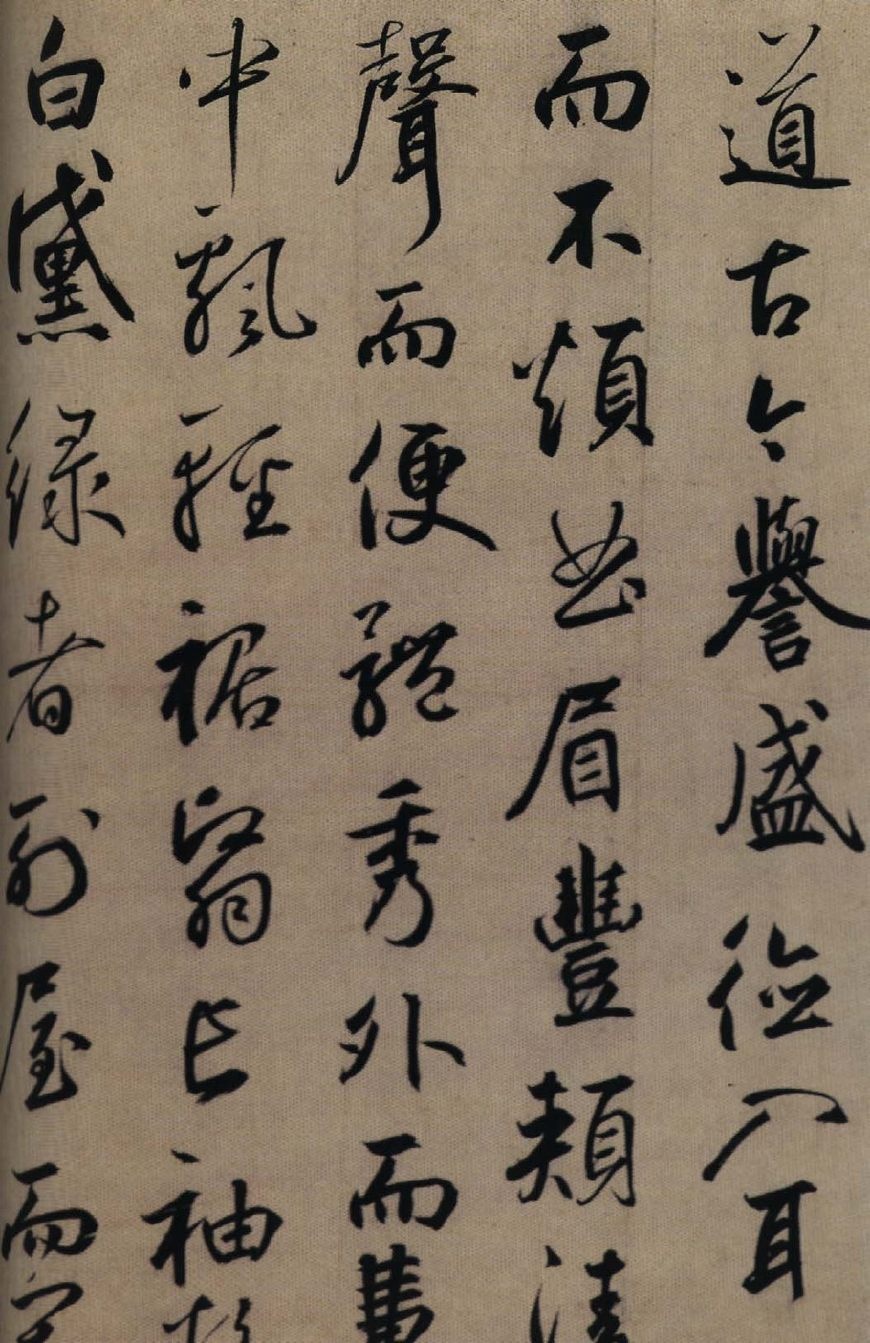 道古今譽盛德入耳
而不煩曲眉豐頰清
聲而便體秀外而
中飄輕裾翳長袖粉
白黛綠者列屋而